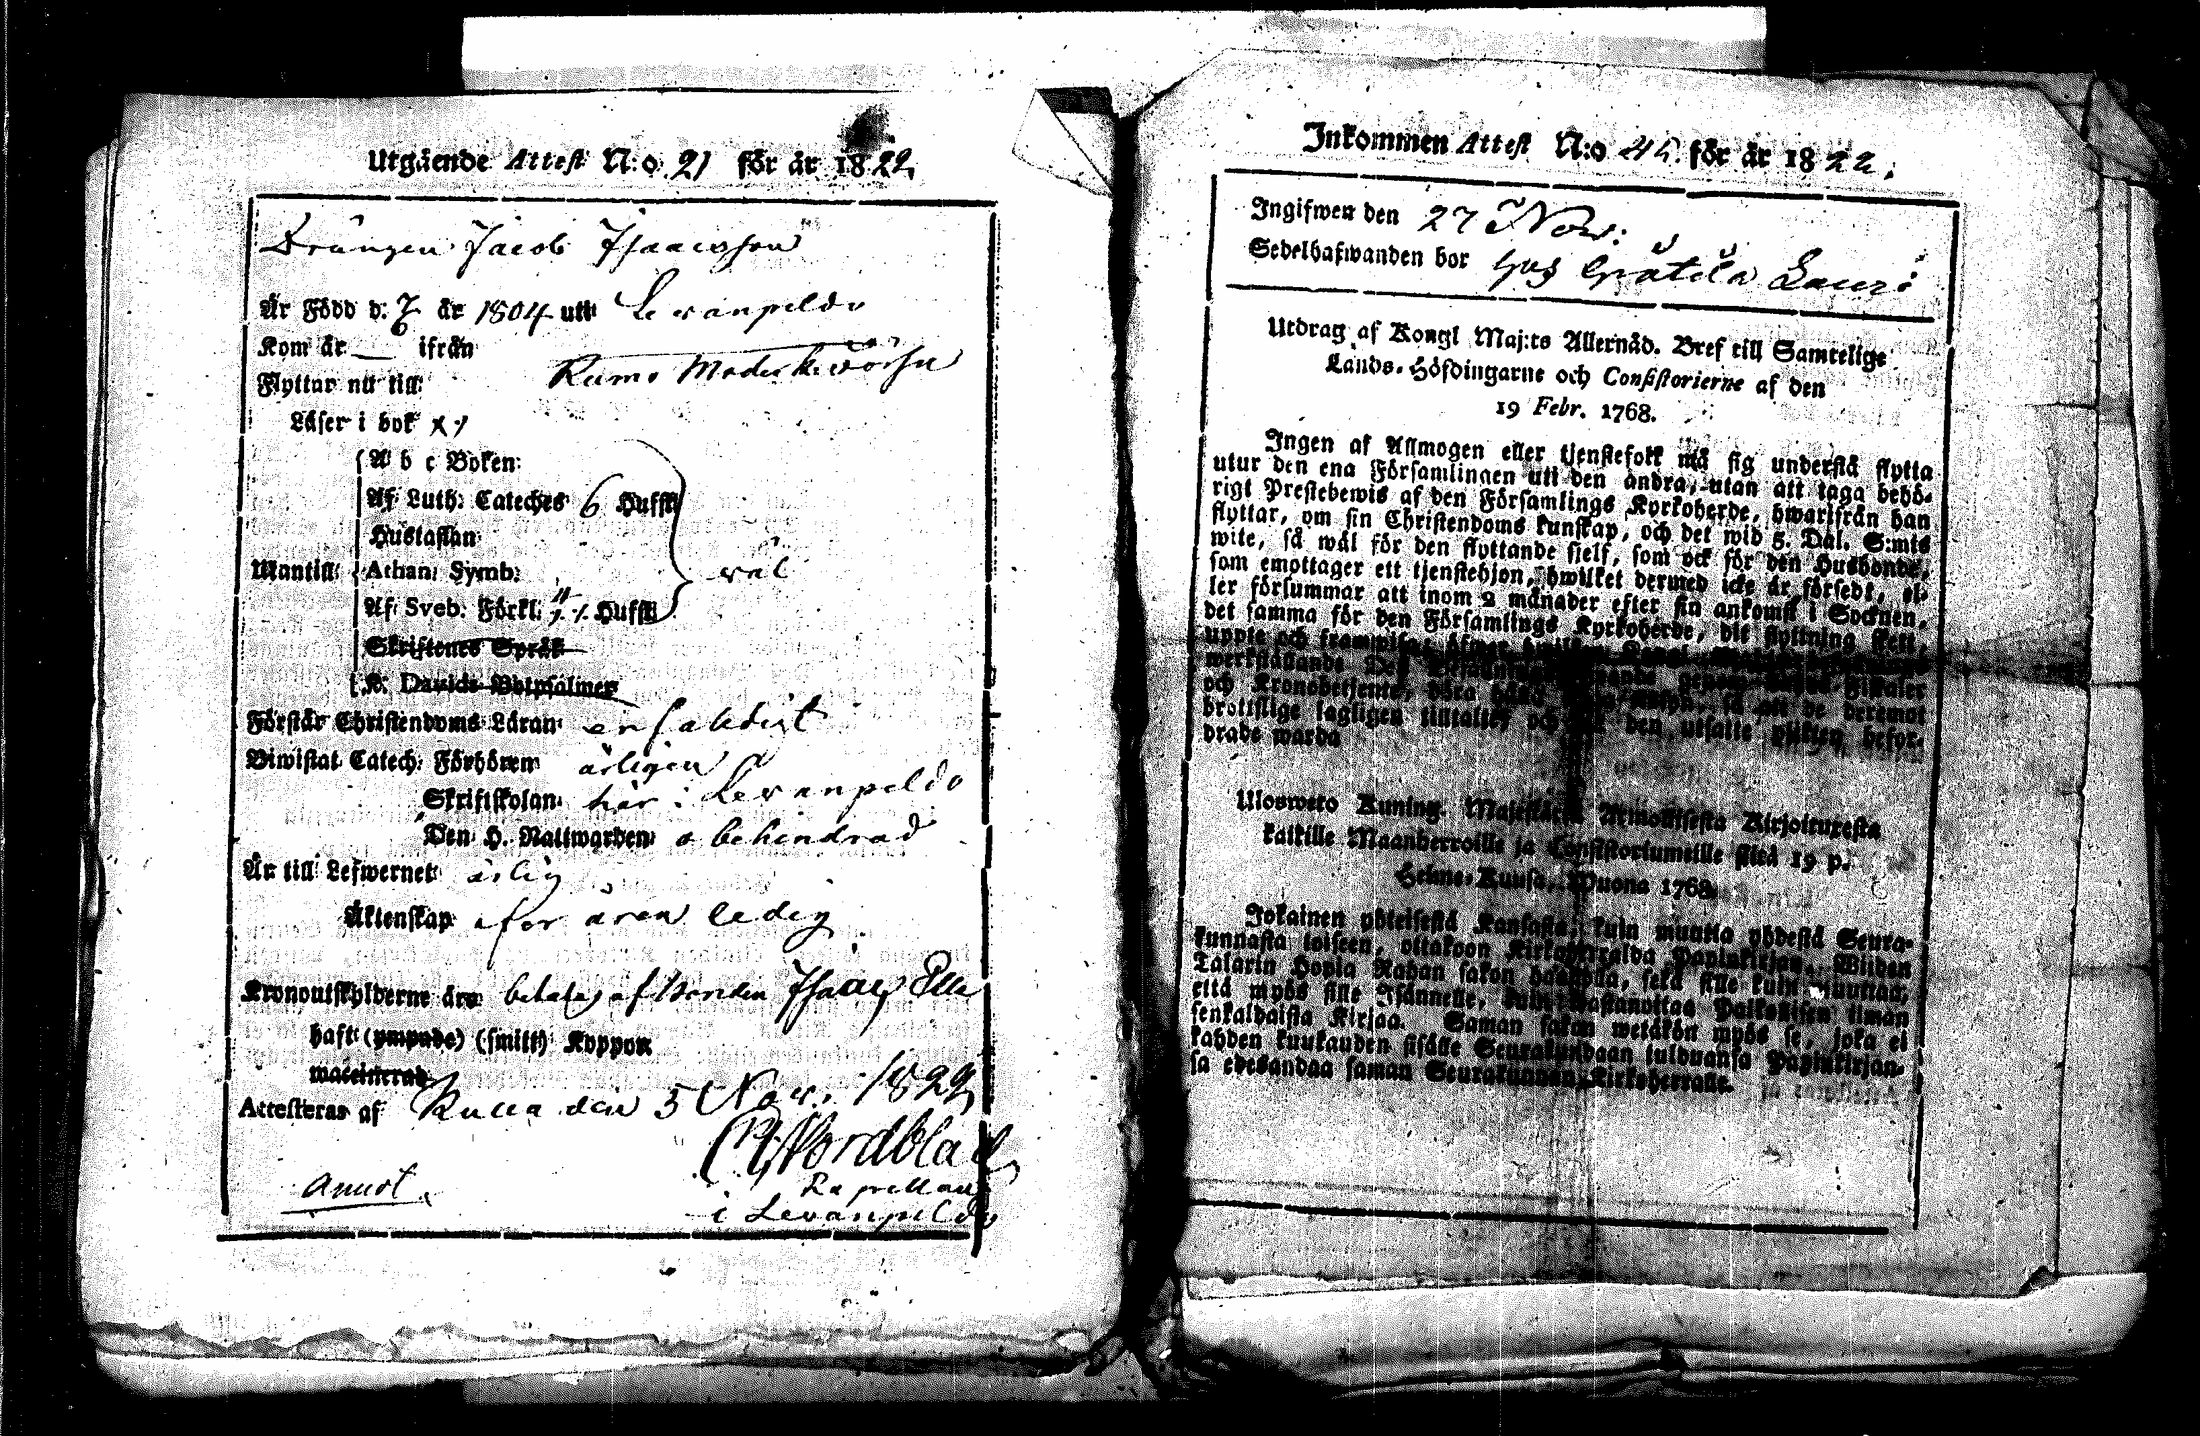 Utgående Attest N:o 21 för år 1822
Drängen Jacob Isaacsson
Är Född d. 7/6 år 1804 uti Levanpeldo
Kom år — ifrån
Flyttar nu till Kumo Moderkyrka
Läser i bok x/
A b c Boken:
Af Luth. Cateches 6 Hufst.
Hustaflan
Mantill: Athan. Symb:
Af Sveb. Förkl. Hufst.
väl
Skriftenes Språk
K. Davids Botpsalmer
Förstår Christendoms Läran enfaldigt
Biwistat Catech. Förhören årligen
Skriftskolan här i Levanpeldo
Den H. Nattwarden obehindrad
Är till Lefwernet ärlig
Äktenskap ledig
Kronoutskylderne äro betalas af Bonden Isaac
haft (ympade) (smitt) Koppor
waccinerad
Attesteras af den 5 Nov. 1822
Nordblad
Kapellan
i Levanpeldo
Inkommen Attest N:o 45 för år 1822.
Ingifwen den 27 Nov:
Sedelhafwanden bor hos Lauri
Utdrag af Kongl Maj:ts Allernåd. Bref till Samtelige
Lands-Höfdingarne och Consistorierne af den
19 Febr. 1768.
Ingen af Allmogen eller tjenstefolk må sig understå flytta
utur den ena Församlingen uti den andra, utan att taga behö-
rigt Prestebewis af den Församlings Kyrkoherde, hwarifrån han
flyttar, om sin Christendoms kunskap, och det wid 5. Dal. S:mts
wite, så wäl för den flyttande sjelf, som ock för den Husbonde,
som emottager ett tjenstehjon, hwilket dermed icke är försedt, el-
ler försummar att inom 2 månader efter sin ankomst i Socknen,
det samma för den Församlings Kyrkoherde, dit flyttning skett,
uppte och framwisa, öfwer hwilken
werkställande Fiskaler
och Kronobetjente, böra så att de deremot
brottslige lagligen tilltalas och till den utsatte plikten befor-
drade warda
Uloswето Kuning. Majestätin Armollisesta Kirjoituxesta
kaikille Maanherroille ja Consistoriumeille siitä 19 p.
Helme-Kuusa, Wuona 1768.
Jokainen yhteisestä Kansasta, kuin muutta yhdestä Seura-
kunnasta toiseen, ottakoon Kirkkoherralda Papinkirjan, Wiiden
Talarin Hopia Rahan sakon haastolla, sekä sille kuin muuttaa,
että myös sille Isännelle, kuin wastanottaa Palkollisen ilman
senkaldaista Kirjaa. Saman sakon wetäköön myös se, joka ei
kahden kuukauden sisälle Seurakundaan tulduansa Papinkirjan-
sa edesandaa saman Seurakunnan Kirkoherralle.